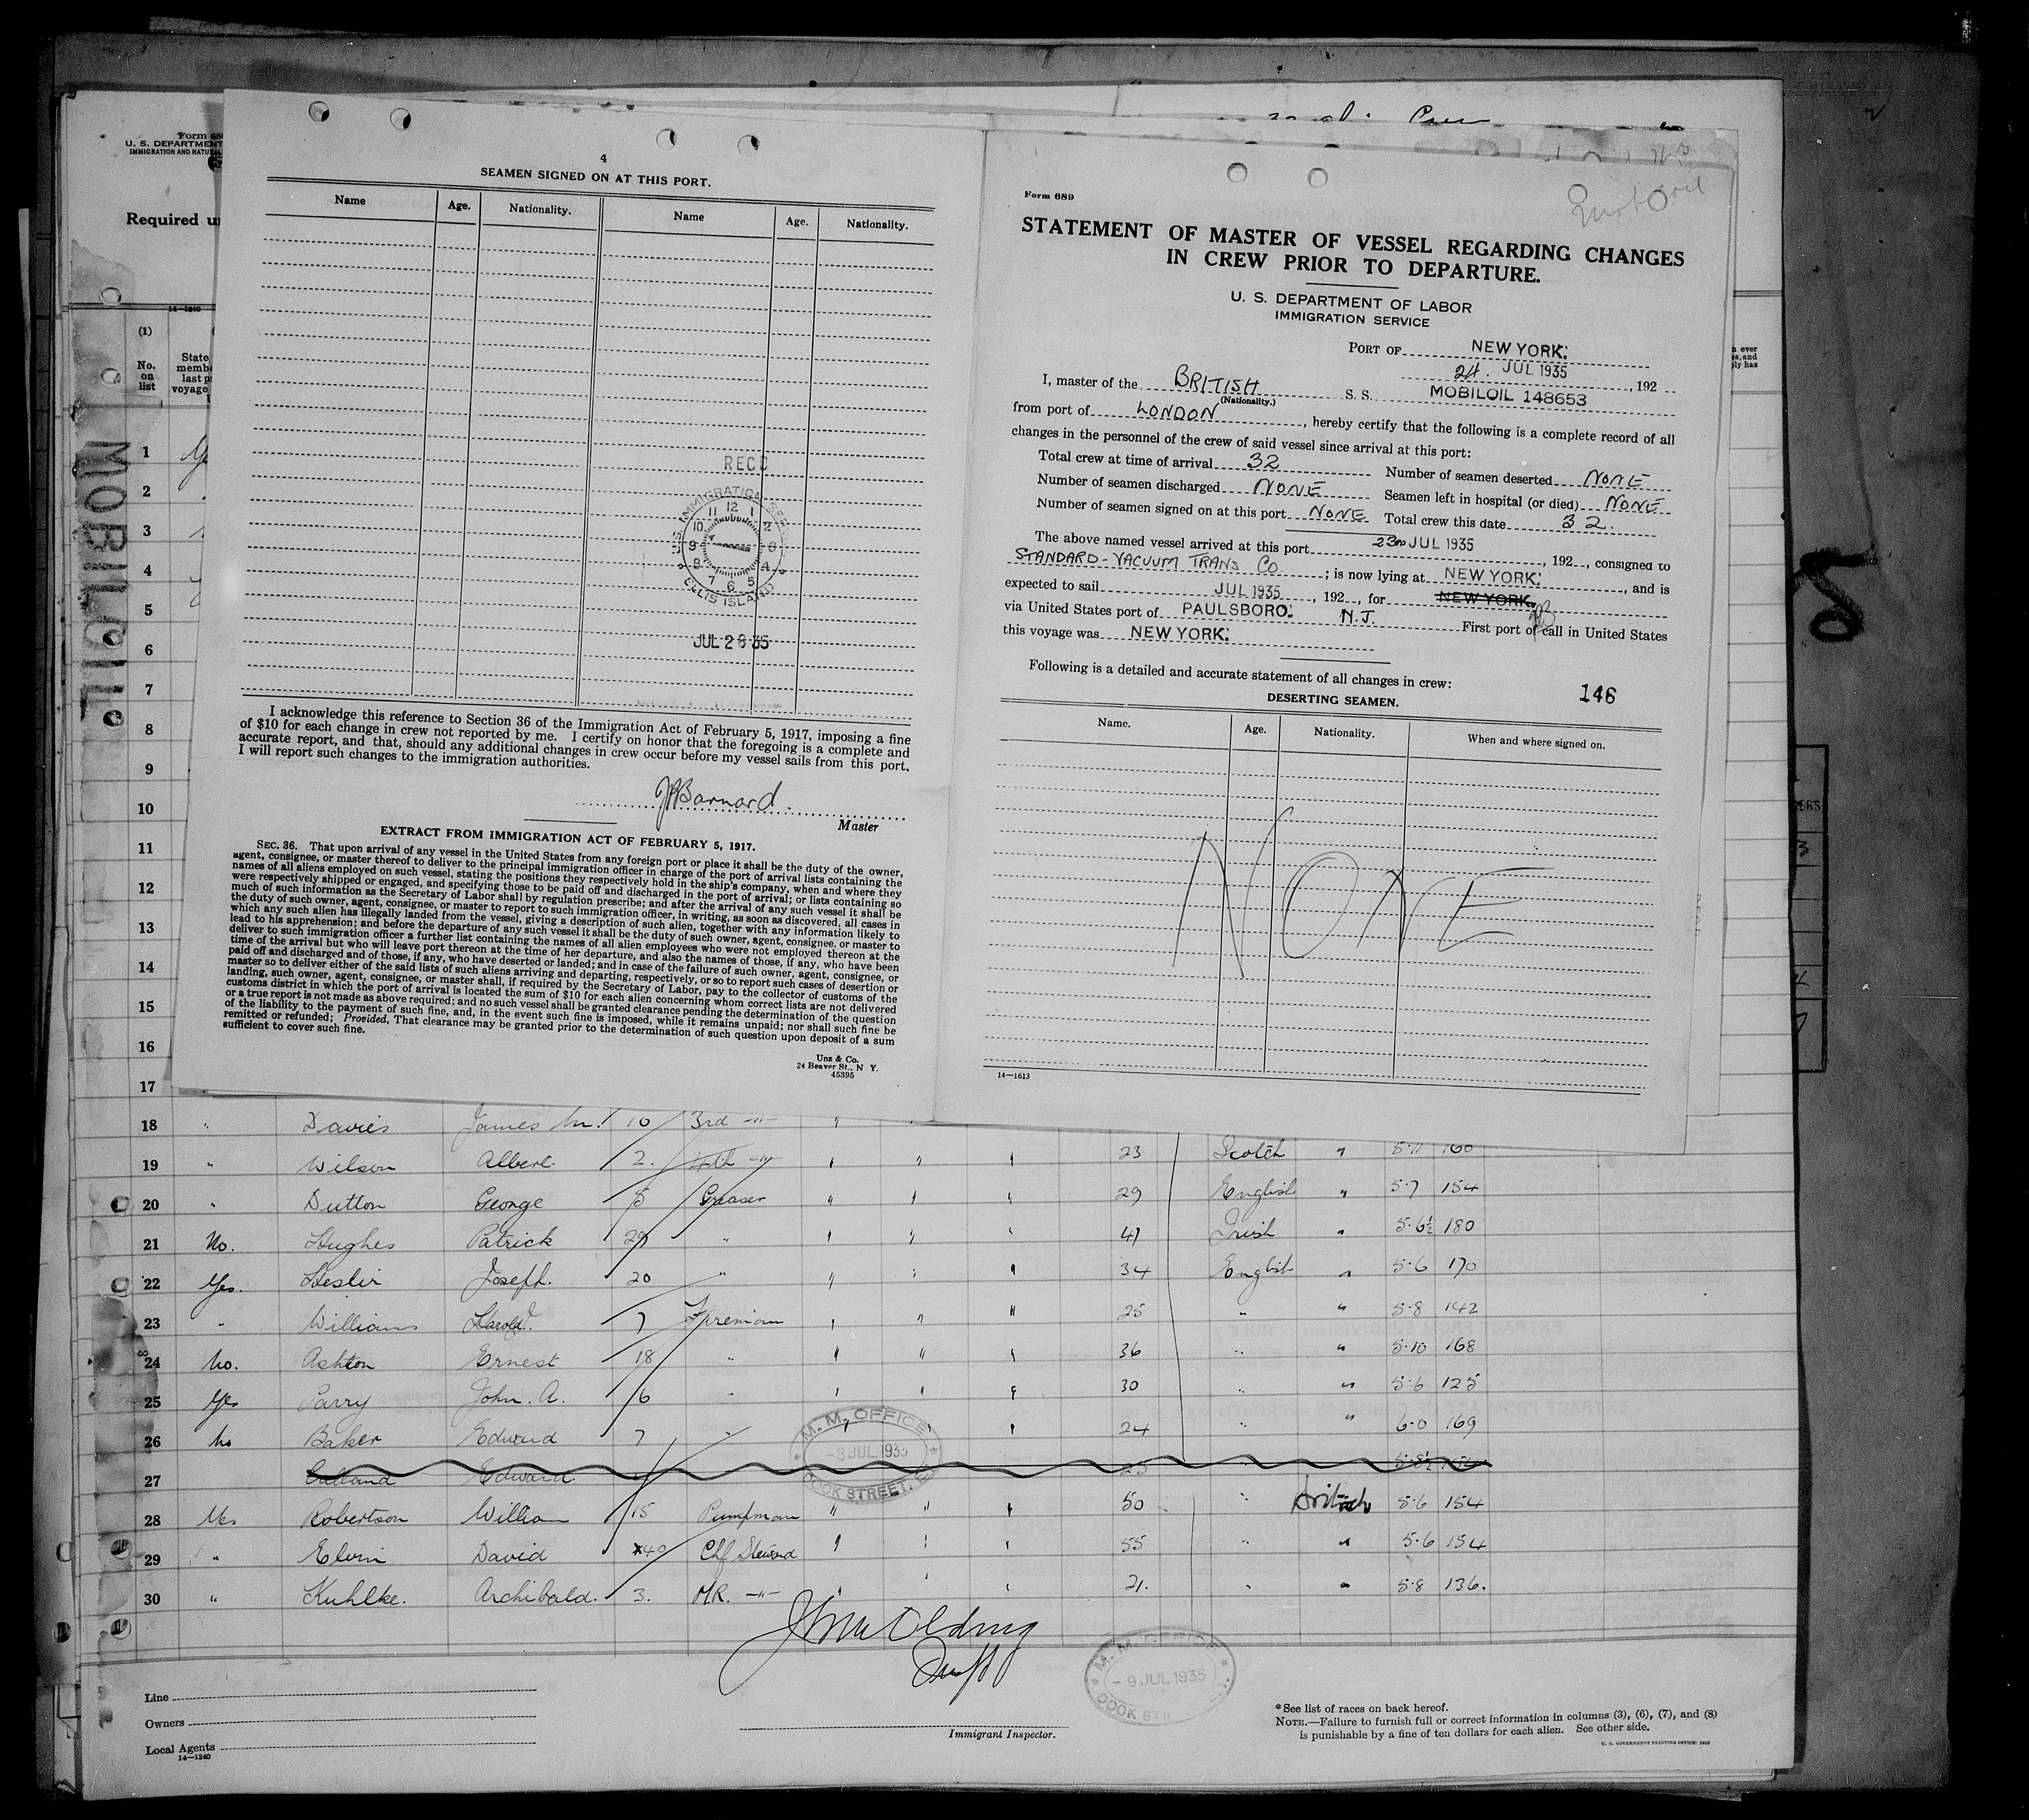 Form 68
U. S. DEPARTMENT
IMMIGRATION AND NATUR
Required u
14—1240
(1)
No. on list
State
memb
last p
voyage
MOBILOIL
1
2
3
4
5
6
7
8
9
10
11
12
13
14
15
16
17
4
SEAMEN SIGNED ON AT THIS PORT.
Name Age. Nationality. Name Age. Nationality.
RECD
U.S. IMMIGRATION SER
ELLIS ISLAND
JUL 26 35
I acknowledge this reference to Section 36 of the Immigration Act of February 5, 1917, imposing a fine
of $10 for each change in crew not reported by me. I certify on honor that the foregoing is a complete and
accurate report, and that, should any additional changes in crew occur before my vessel sails from this port,
I will report such changes to the immigration authorities.
Barnard.
Master
EXTRACT FROM IMMIGRATION ACT OF FEBRUARY 5, 1917.
SEC. 36. That upon arrival of any vessel in the United States from any foreign port or place it shall be the duty of the owner,
agent, consignee, or master thereof to deliver to the principal immigration officer in charge of the port of arrival lists containing the
names of all aliens employed on such vessel, stating the positions they respectively hold in the ship's company, when and where they
were respectively shipped or engaged, and specifying those to be paid off and discharged in the port of arrival; or lists containing so
much of such information as the Secretary of Labor shall by regulation prescribe; and after the arrival of any such vessel it shall be
the duty of such owner, agent, consignee, or master to report to such immigration officer, in writing, as soon as discovered, all cases in
which any such alien has illegally landed from the vessel, giving a description of such alien, together with any information likely to
lead to his apprehension; and before the departure of any such vessel it shall be the duty of such owner, agent, consignee. or master to
deliver to such immigration officer a further list containing the names of all alien employees who were not employed thereon at the
time of the arrival but who will leave port thereon at the time of her departure, and also the names of those, if any, who have been
paid off and discharged and of those, if any, who have deserted or landed; and in case of the failure of such owner, agent, consignee, or
master so to deliver either of the said lists of such aliens arriving and departing, respectively, or so to report such cases of desertion or
landing, such owner, agent, consignee, or master shall, if required by the Secretary of Labor, pay to the collector of customs of the
customs district in which the port of arrival is located the sum of $10 for each alien concerning whom correct lists are not delivered
or a true report is not made as above required; and no such vessel shall be granted clearance pending the determination of the question
of the liability to the payment of such fine, and, in the event such fine is imposed, while it remains unpaid; nor shall such fine be
remitted or refunded; Provided, That clearance may be granted prior to the determination of such question upon deposit of a sum
sufficient to cover such fine.
Unz & Co.
24 Beaver St., N Y.
45395
Form 689
STATEMENT OF MASTER OF VESSEL REGARDING CHANGES
IN CREW PRIOR TO DEPARTURE.
U. S. DEPARTMENT OF LABOR
IMMIGRATION SERVICE
PORT OF NEW YORK.
24. JUL 1935, 192
I, master of the BRITISH S. S. MOBILOIL 148653
(Nationality.)
from port of LONDON, hereby certify that the following is a complete record of all
changes in the personnel of the crew of said vessel since arrival at this port:
Total crew at time of arrival 32 Number of seamen deserted NONE
Number of seamen discharged NONE Seamen left in hospital (or died) NONE
Number of seamen signed on at this port NONE Total crew this date 32.
The above named vessel arrived at this port 23RD JUL 1935, 192 , consigned to
STANDARD-VACUUM TRANS CO.; is now lying at NEW YORK., and is
expected to sail JUL 1935, 192 , for NEW YORK.
via United States port of PAULSBORO. N.J. First port of call in United States
this voyage was NEW YORK.
Following is a detailed and accurate statement of all changes in crew:
146
DESERTING SEAMEN.
Name. Age. Nationality. When and where signed on.
NONE
14—1613
18 " Davies James M. 10 3rd -"-
19 " Wilson Albert. 2. 4th -"- " " " 23 Scotch " 5·11 160
20 " Dutton George 5 Greaser " " " 29 English " 5·7 154
21 No. Hughes Patrick 29 " " " " 41 Irish " 5·6½ 180
22 Yes. Joseph. 20 " " " " 34 English " 5·6 170
23 " Williams Harold. 7 Fireman " " " 25 " " 5·8 142
24 No. Ashton Ernest 18 " " " " 36 " " 5·10 168
25 Yes Parry John. A. 6 " " " " 30 " " 5·6 125
26 No Baker Edward 7 " " " 24 " " 6·0 169
27 Edward. 25 5·8½
28 Yes Robertson William 15 Pumpman " " " 50 " British 5·6 154
29 " Elvin David 40 Chf Steward " " " 55 " " 5·6 154
30 " Kuhlke. Archibald. 3. M.R. -"- " " " 21. " " 5·8 136.
M. M. OFFICE
-8 JUL 1935
DOCK STREET, E.1.
M. M. OFFICE
- 9 JUL 1935
DOCK STR
Line
Owners
Local Agents
14—1240
Immigrant Inspector.
*See list of races on back hereof.
NOTE.—Failure to furnish full or correct information in columns (3), (6), (7), and (8)
is punishable by a fine of ten dollars for each alien. See other side.
U. S. GOVERNMENT PRINTING OFFICE: 1933